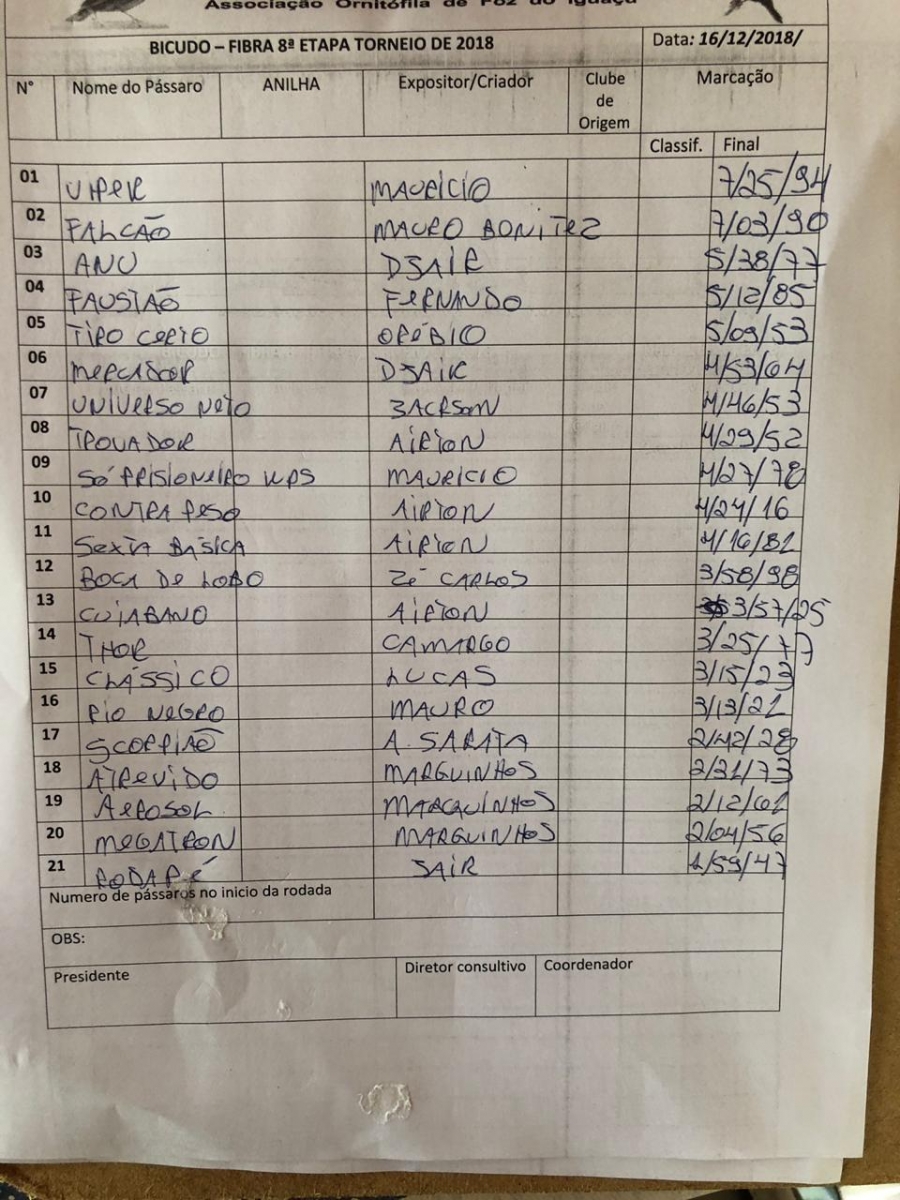 Associação Ornitófila de Foz do Iguaçu
BICUDO – FIBRA 8ª ETAPA TORNEIO DE 2018 Data: 16/12/2018/
N° Nome do Pássaro ANILHA Expositor/Criador Clube de Origem Marcação
Classif. Final
01 VIPER MAURÍCIO 7/25/94
02 FALCÃO MAURO BONITEZ 7/03/90
03 ANU DJAIR 5/38/77
04 FAUSTÃO FERNANDO 5/12/85
05 TIPO CERTO ORÉBIO 5/09/53
06 MERCADOR DJAIR 4/53/64
07 UNIVERSO NETO JACKSON 4/46/53
08 TROVADOR AIRTON 4/29/52
09 SÓ PRISIONEIRO KPS MAURICIO 4/27/78
10 CONTRA PESO AIRTON 4/24/16
11 SEXTA BÁSICA AIRTON 4/16/82
12 BOCA DE LOBO ZÉ CARLOS 3/58/98
13 CUIABANO AIRTON 3/57/25
14 THOR CAMARGO 3/25/77
15 CLÁSSICO LUCAS 3/15/23
16 RIO NEGRO MAURO 3/13/21
17 SCORPIÃO A. SARATA 2/42/28
18 ATREVIDO MARQUINHOS 2/31/73
19 AEROSOL MARCQUINHOS 2/12/61
20 MEGATRON MARQUINHOS 2/04/56
21 RODAPÉ JAIR 1/59/47
Numero de pássaros no inicio da rodada
OBS:
Presidente Diretor consultivo Coordenador